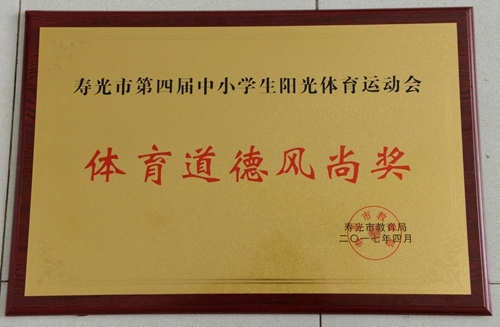 寿光市第四届中小学生阳光体育运动会
体育道德风尚奖
寿光市教育局
二〇一七年四月